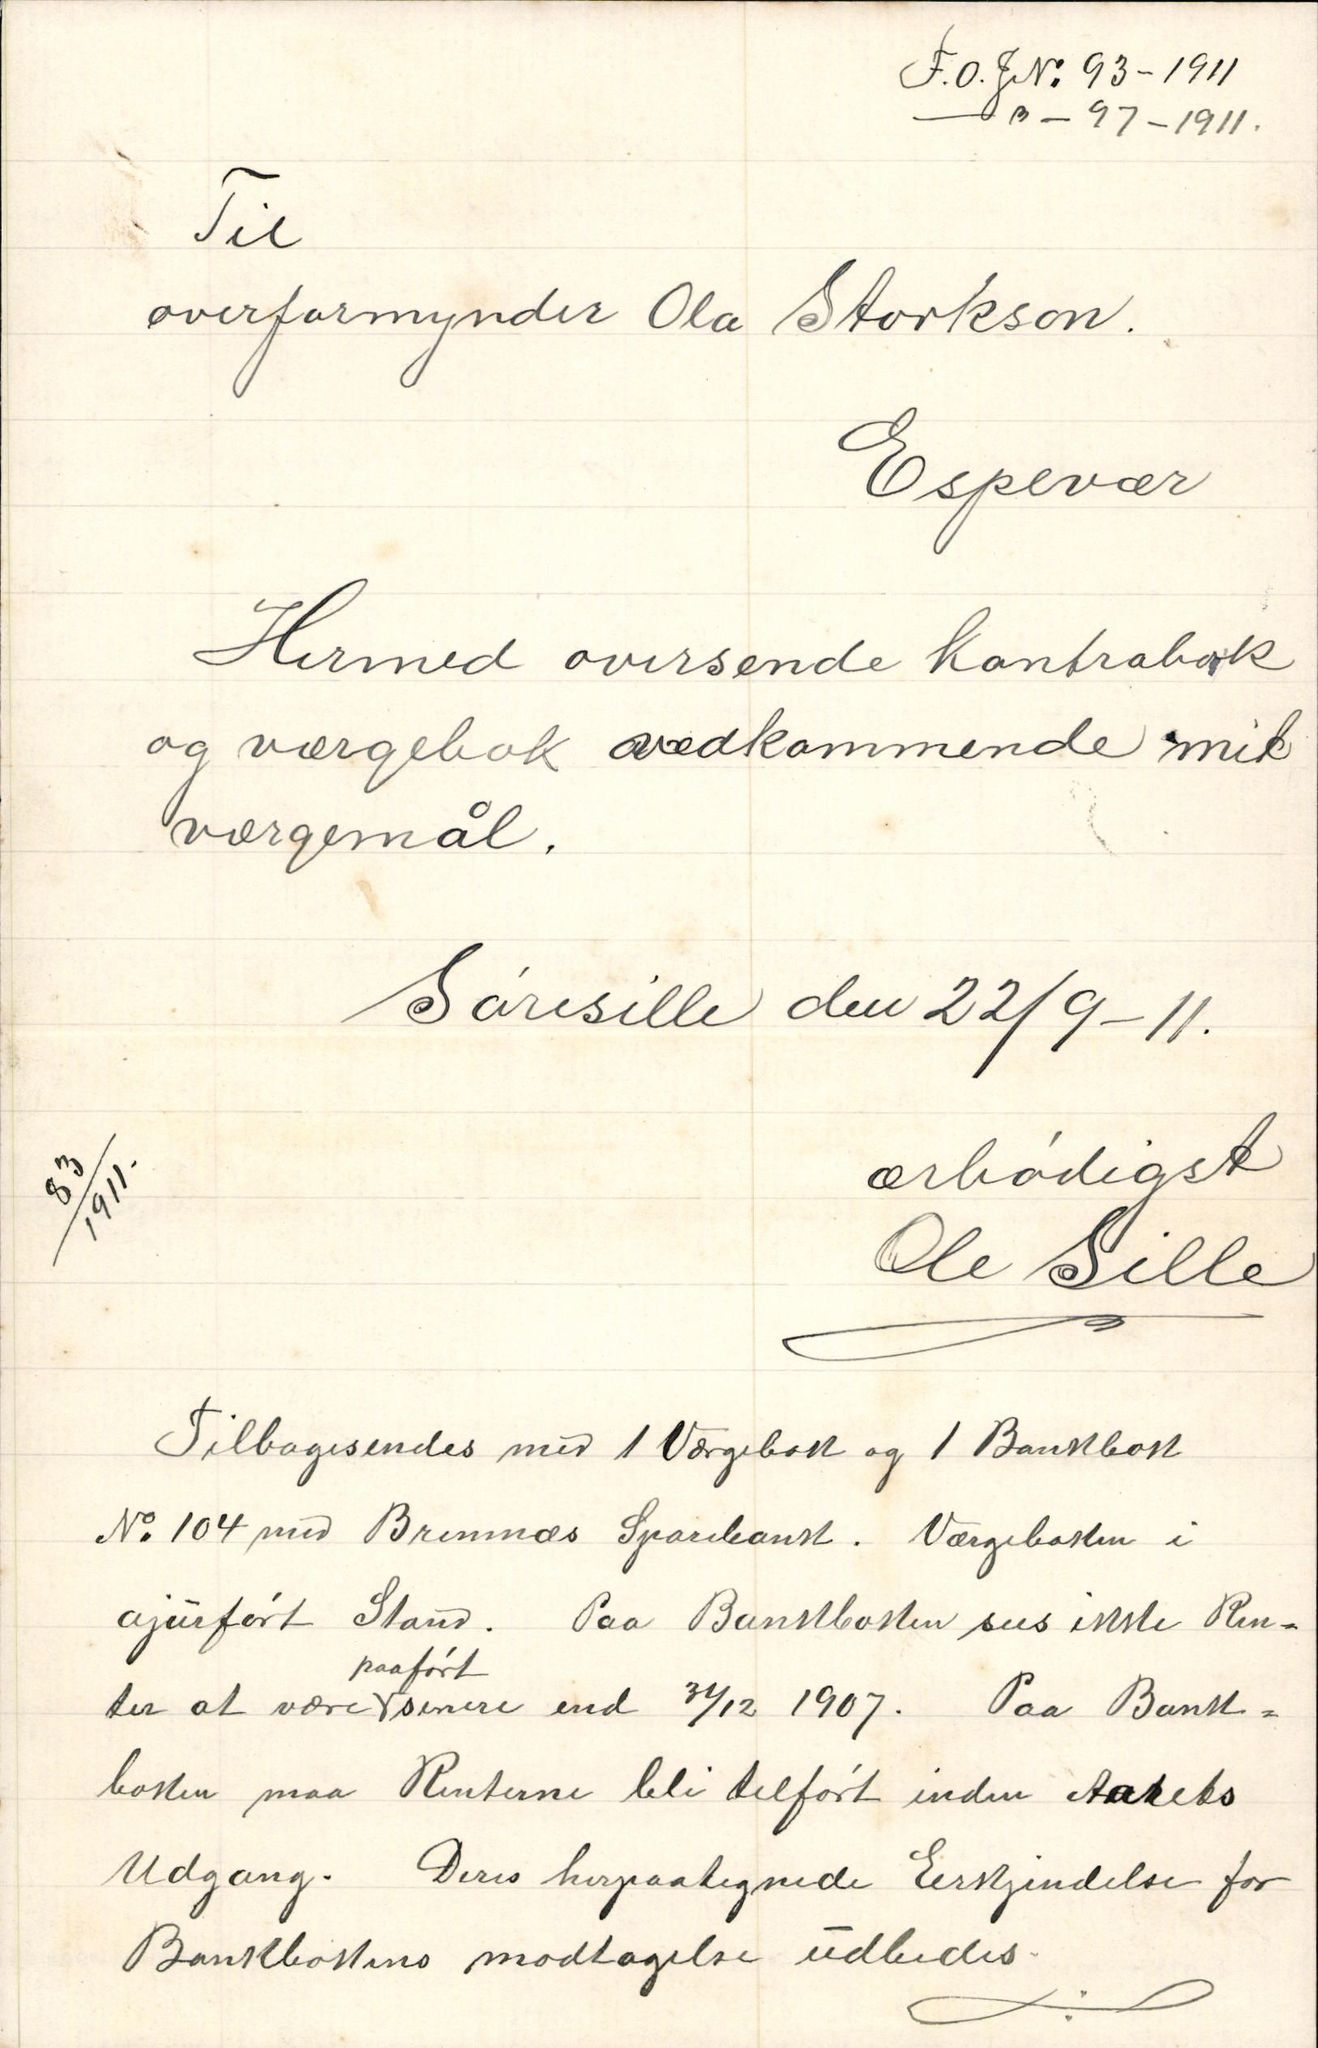 F.O.J.No: 93-1911
— " — 97-1911.
Til
overformynder Ola Storkson.
Espevær
Hermed oversende kontrabok
og værgebok vedkommende mit
værgemål.
Sóresille den 22/9-11.
83/1911.
ærbódigst
Ole Sille
Tilbagesendes med 1 Værgebok og 1 Bankbok
No. 104 med Bremnæs Sparebank. Værgeboken i
ajurfórt Stand. Paa Bankboken sees ikke Ren=
ter at være paafórt senere end 31/12 1907. Paa Bank=
boken maa Renterne bli tilfórt inden Aarets
Udgang. Deres herpaategnede Erkjendelse for
Bankbokens modtagelse udbedes.